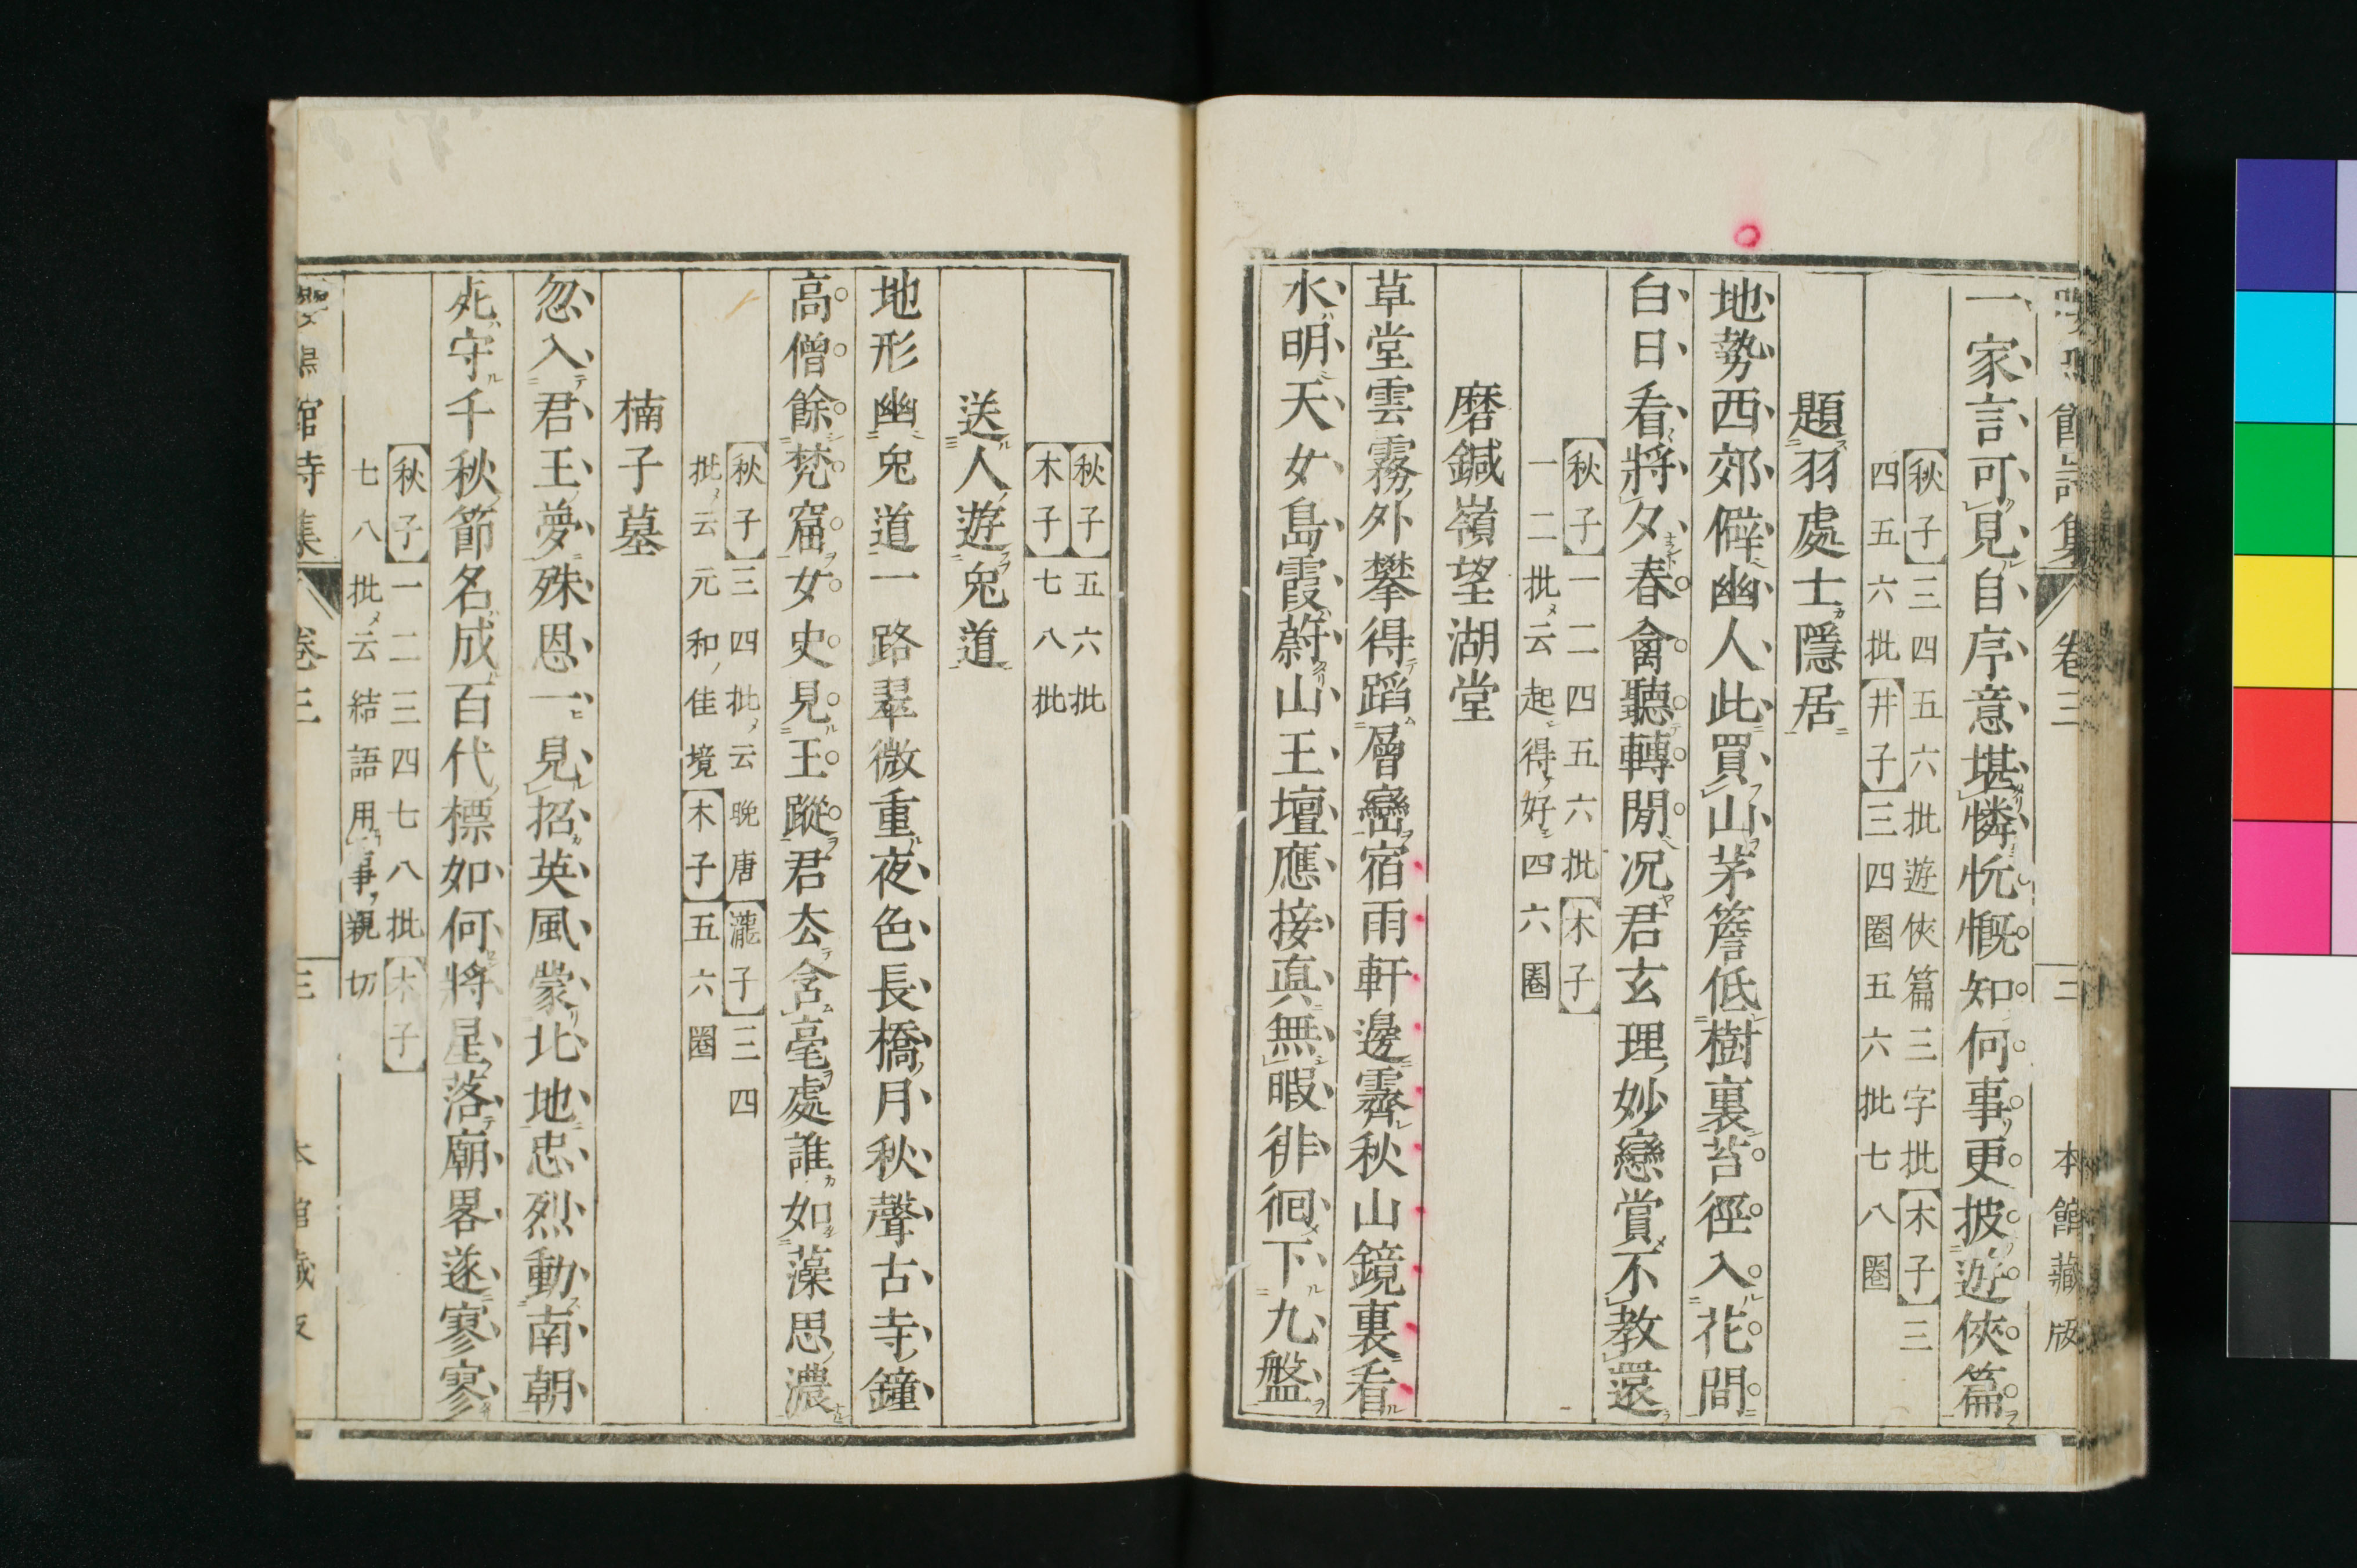 館詩集 卷三 二 本館藏版
一家言可見自序意堪憐忼慨知何事更披遊俠篇
【秋子】三四五六批遊俠篇三字批【木子】三
四五六批【井子】三四圈五六批七八圈
題羽處士隱居
地勢西郊僻幽人此買山茅簷低樹裏苔徑入花間
白日看將夕春禽聽轉閒況君玄理妙戀賞不教還
【秋子】一二四五六批【木子】
一二批云起得好四六圈
磨鍼嶺望湖堂
草堂雲霧外攀得蹈層巒宿雨軒邊霽秋山鏡裏看
水明天女島霞蔚山王壇應接眞無暇徘徊下九盤
【秋子】五六批
【木子】七八批
送人遊兔道
地形幽兔道一路翠微重夜色長橋月秋聲古寺鐘
高僧餘梵窟女史見王蹤君厺含毫處誰如藻思濃
【秋子】三四批云晚唐【瀧子】三四
批云元和佳境【木子】五六圈
楠子墓
忽入君王夢殊恩一見招英風蒙北地忠烈動南朝
死守千秋節名成百代標如何將星落廟畧遂寥寥
【秋子】一二三四七八批【木子】
七八批云結語用事親切
館詩集 卷三 三 本館藏版